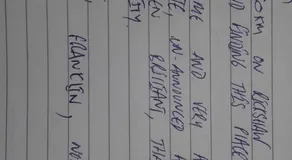 ORM ON RICKSHAW
D FINDING THIS PLACE
ME AND VERY
E, UN-ANNOUNCED
EN BRILLIANT,
ITY
FRANKLIN,